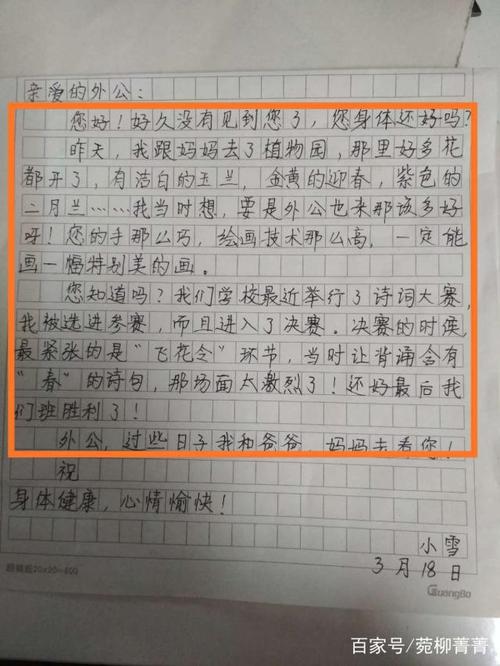 亲爱的外公：
您好！好久没有见到您了，您身体还好吗？
昨天，我跟妈妈去了植物园，那里好多花
都开了，有洁白的玉兰，金黄的迎春，紫色的
二月兰……我当时想，要是外公也来那该多好
呀！您的手那么巧，绘画技术那么高，一定能
画一幅特别美的画。
您知道吗？我们学校最近举行了诗词大赛，
我被选进参赛，而且进入了决赛。决赛的时候
最紧张的是“飞花令”环节，当时让背诵含有
“春”的诗句，那场面太激烈了！还好最后我
们班胜利了！
外公，过些日子我和爸爸、妈妈去看您！
祝
身体健康，心情愉快！
小雪
3月18日
20×20=400
GuangBo
百家号/菀柳菁菁